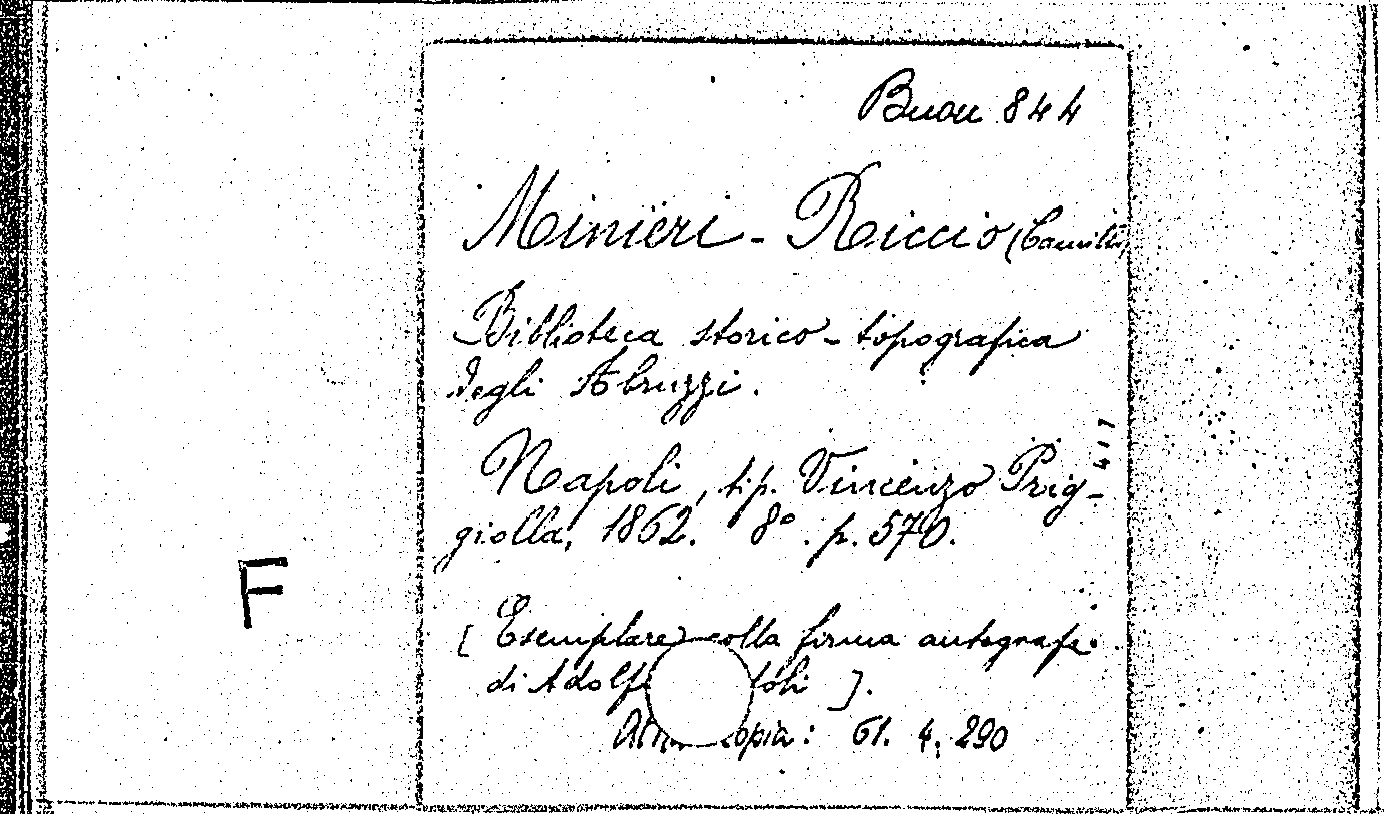 Buon 844
Minieri - Riccio (Camillo)
Biblioteca storico - topografica
degli Abruzzi.
417
Napoli, tip. Vincenzo Prig-
giolla, 1862. 8° . p. 570.
F
[ Esemplare colla firma autografa
di Adolfo
]. 
copia: 61. 4. 290